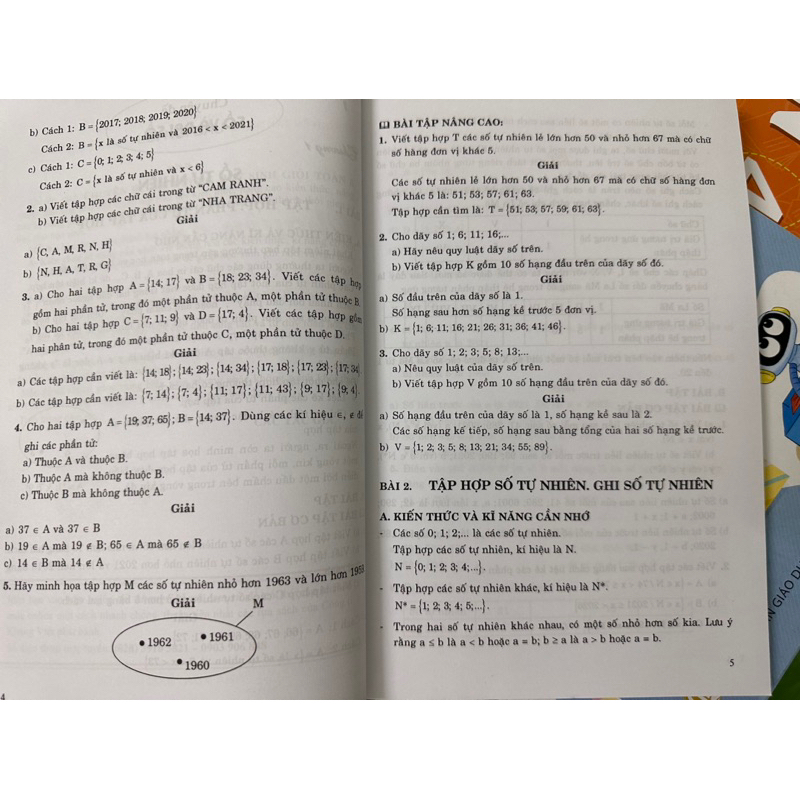 b) Cách 1: B = {2017; 2018; 2019; 2020}
Cách 2: B = {x là số tự nhiên và 2016 < x < 2021}
c) Cách 1: C = {0; 1; 2; 3; 4; 5}
Cách 2: C = {x là số tự nhiên và x < 6}
2. a) Viết tập hợp các chữ cái trong từ “CAM RANH”.
b) Viết tập hợp các chữ cái trong từ “NHA TRANG”.
Giải
a) {C, A, M, R, N, H}
b) {N, H, A, T, R, G}
3. a) Cho hai tập hợp A = {14; 17} và B = {18; 23; 34}. Viết các tập hợp
gồm hai phần tử, trong đó một phần tử thuộc A, một phần tử thuộc B.
b) Cho hai tập hợp C = {7; 11; 9} và D = {17; 4}. Viết các tập hợp gồm
hai phân tử, trong đó một phần tử thuộc C, một phần tử thuộc D.
Giải
a) Các tập hợp cần viết là: {14; 18}; {14; 23}; {14; 34}; {17; 18}; {17; 23}; {17; 34
b) Các tập hợp cần viết là: {7; 14}; {7; 4}; {11; 17}; {11; 43}; {9; 17}; {9; 4}.
4. Cho hai tập hợp A = {19; 37; 65}; B = {14; 37}. Dùng các kí hiệu ∈, ∉ để
ghi các phần tử:
a) Thuộc A và thuộc B.
b) Thuộc A mà không thuộc B.
c) Thuộc B mà không thuộc A.
Giải
a) 37 ∈ A và 37 ∈ B
b) 19 ∈ A mà 19 ∉ B; 65 ∈ A mà 65 ∉ B
c) 14 ∈ B mà 14 ∉ A
5. Hãy minh họa tập hợp M các số tự nhiên nhỏ hơn 1963 và lớn hơn 1959
Giải
M
1962
1961
1960
4
BÀI TẬP NÂNG CAO:
1. Viết tập hợp T các số tự nhiên lẻ lớn hơn 50 và nhỏ hơn 67 mà có chữ
số hàng đơn vị khác 5.
Giải
Các số tự nhiên lẻ lớn hơn 50 và nhỏ hơn 67 mà có chữ số hàng đơn
vị khác 5 là: 51; 53; 57; 61; 63.
Tập hợp cần tìm là: T = {51; 53; 57; 59; 61; 63}.
2. Cho dãy số 1; 6; 11; 16;...
a) Hãy nêu quy luật dãy số trên.
b) Viết tập hợp K gồm 10 số hạng đầu trên của dãy số đó.
Giải
a) Số đầu trên của dãy số là 1.
Số hạng sau hơn số hạng kề trước 5 đơn vị.
b) K = {1; 6; 11; 16; 21; 26; 31; 36; 41; 46}.
3. Cho dãy số 1; 2; 3; 5; 8; 13;...
a) Nêu quy luật của dãy số trên.
b) Viết tập hợp V gồm 10 số hạng đầu trên của dãy số đó.
Giải
a) Số hạng đầu trên của dãy số là 1, số hạng kề sau là 2.
Các số hạng kế tiếp, số hạng sau bằng tổng của hai số hạng kề trước.
b) V = {1; 2; 3; 5; 8; 13; 21; 34; 55; 89}.
BÀI 2. TẬP HỢP SỐ TỰ NHIÊN. GHI SỐ TỰ NHIÊN
A. KIẾN THỨC VÀ KĨ NĂNG CẦN NHỚ
- Các số 0; 1; 2;... là các số tự nhiên.
Tập hợp các số tự nhiên, kí hiệu là N.
N = {0; 1; 2; 3; 4;...}.
- Tập hợp các số tự nhiên khác, kí hiệu là N*.
N* = {1; 2; 3; 4; 5;...}.
- Trong hai số tự nhiên khác nhau, có một số nhỏ hơn số kia. Lưu ý
rằng a ≤ b là a < b hoặc a = b; b ≥ a là a > b hoặc a = b.
5